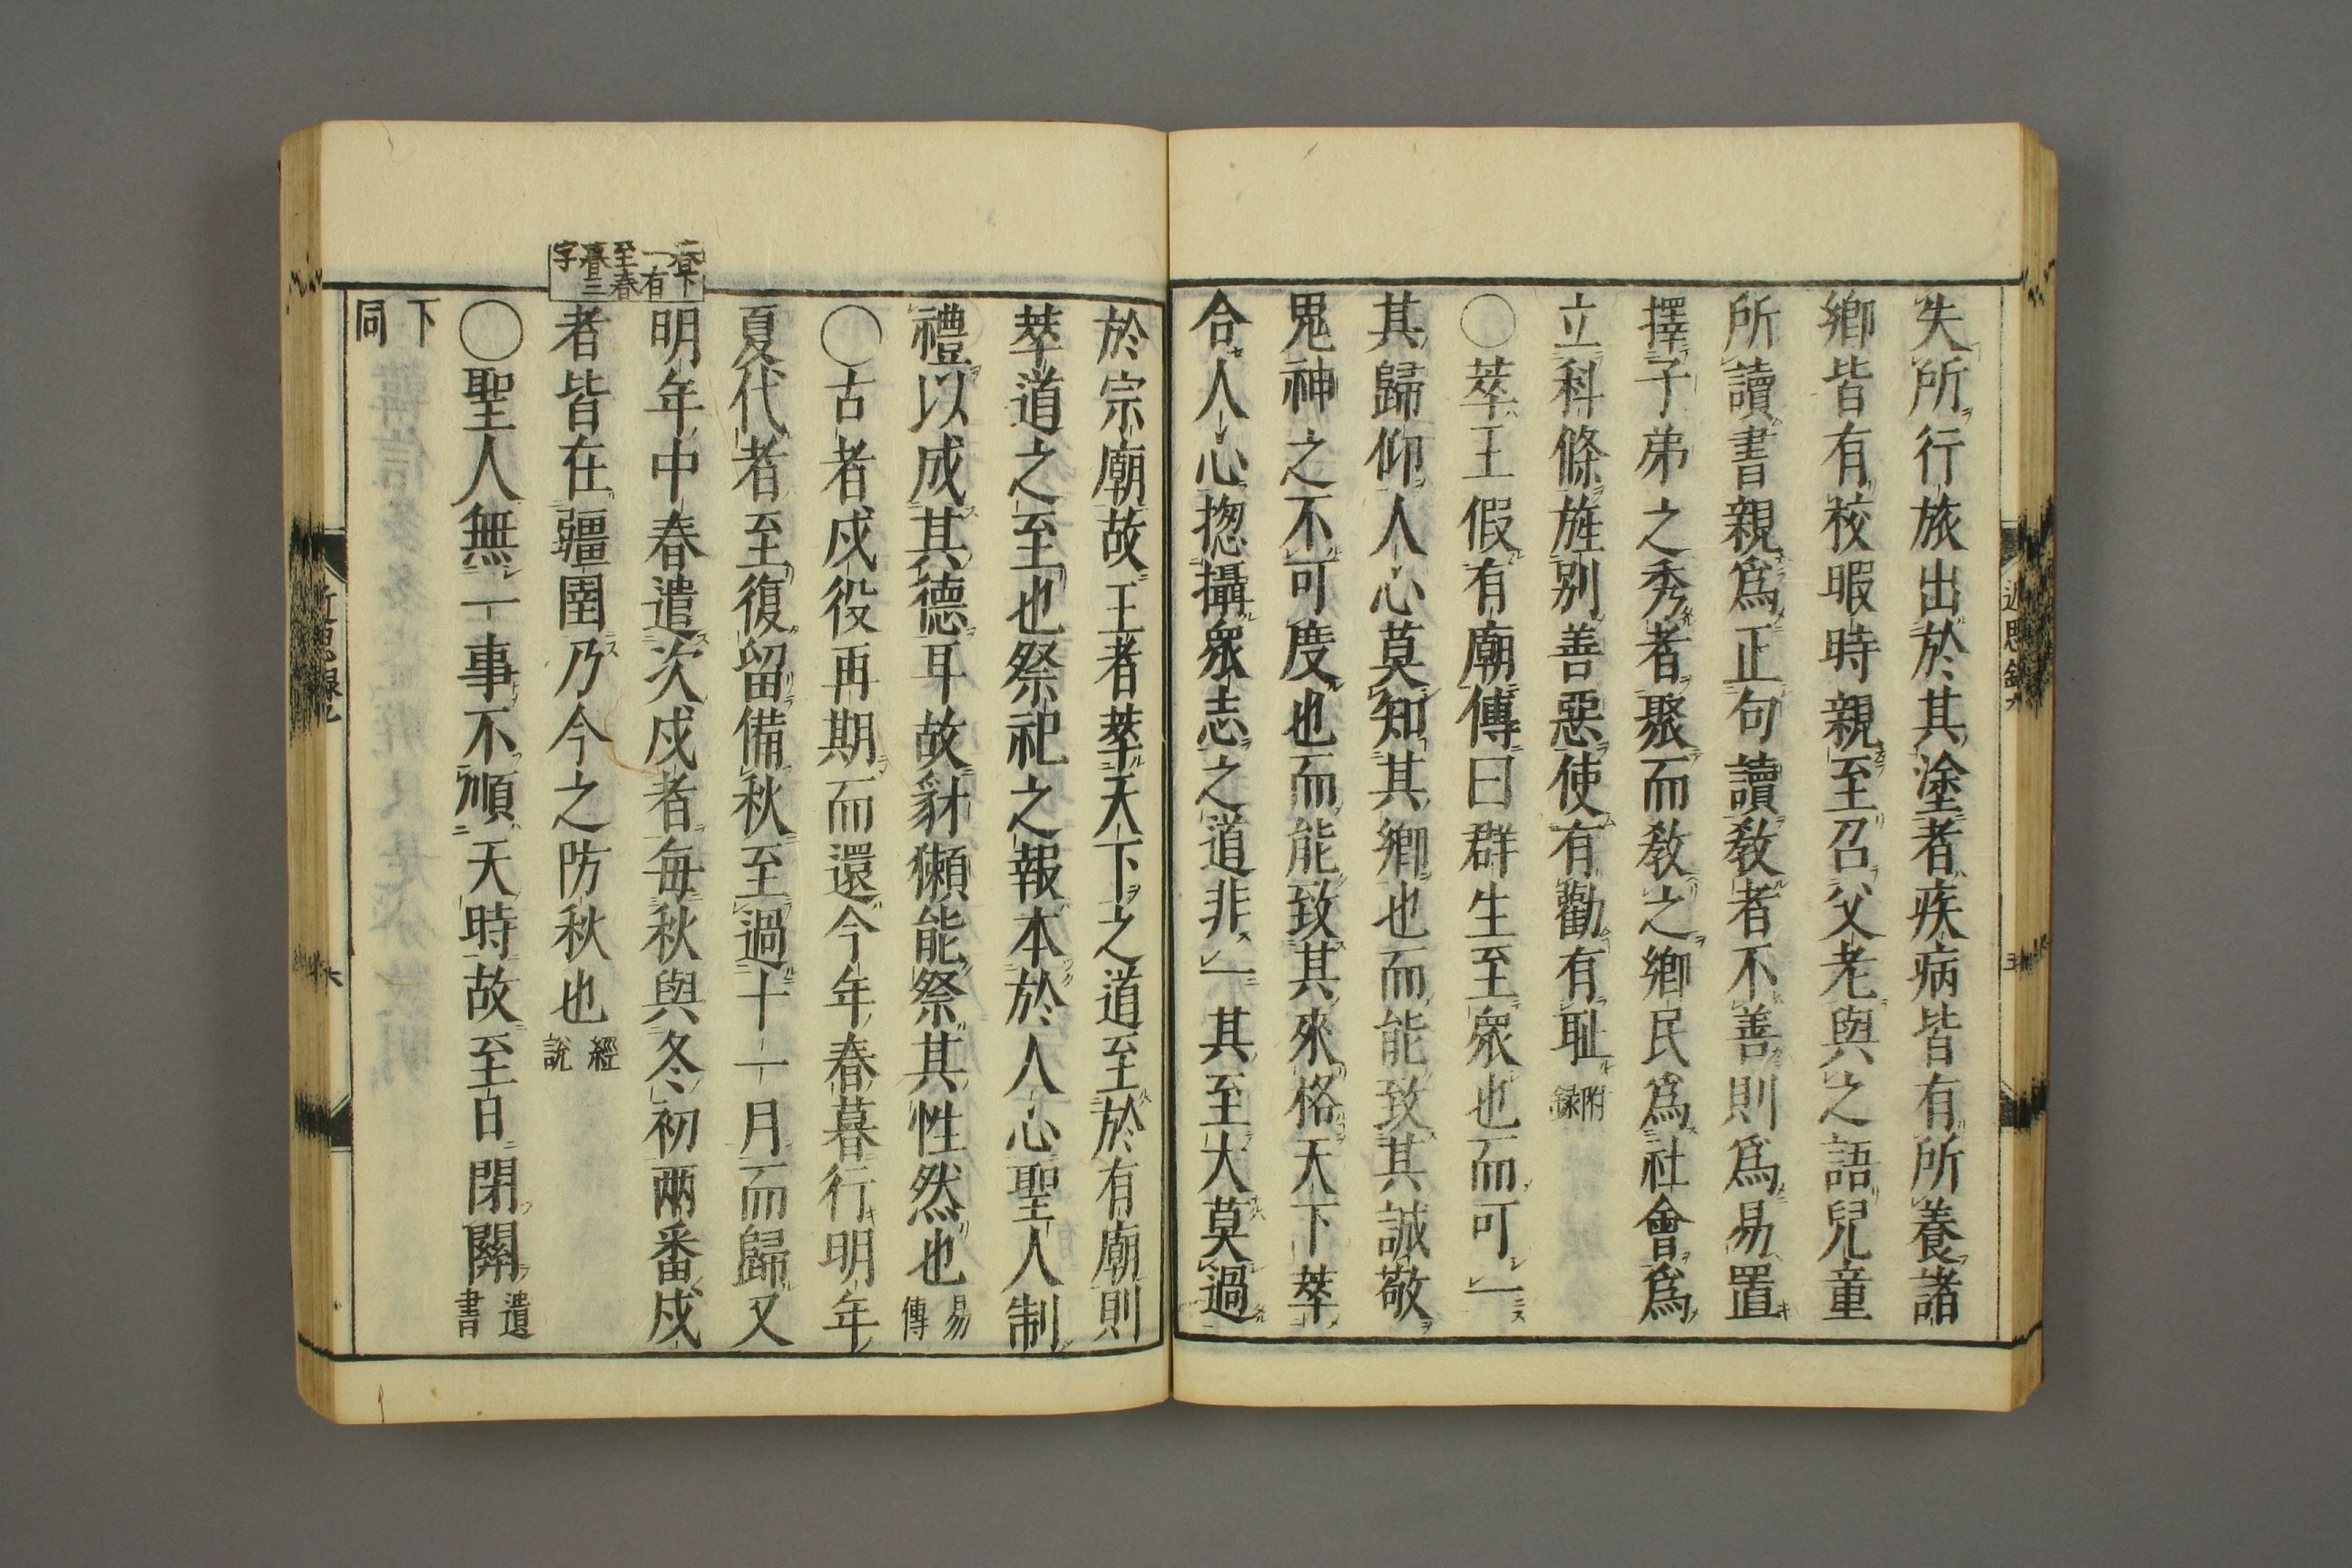 失所行旅出於其塗者疾病皆有所養諸
鄉皆有校暇時親至召父老與之語兒童
所讀書親爲正句讀教者不善則爲易置
擇子弟之秀者聚而教之鄉民爲社會爲
立科條旌別善惡使有勸有耻附錄
○萃王假有廟傳曰群生至衆也而可一
其歸仰人心莫知其鄉也而能致其誠敬
鬼神之不可度也而能致其來格天下萃
合人心揔攝衆志之道非一其至大莫過
於宗廟故王者萃天下之道至於有廟則
萃道之至也祭祀之報本於人心聖人制
禮以成其德耳故豺獺能祭其性然也易傳
○古者戍役再期而還今年春暮行明年
夏代者至復留備秋至過十一月而歸又
明年中春遣次戍者每秋與冬初兩番戍
者皆在疆圉乃今之防秋也經說
○聖人無一事不順天時故至日閉關遺書
下同
春下
一有
至春
暮三
字
近思錄九